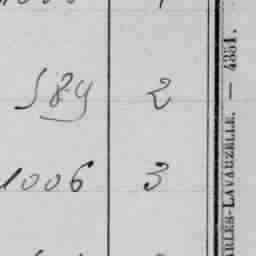 589 2
1006 3
ARLES-LAVAUZELLE. — 4351.